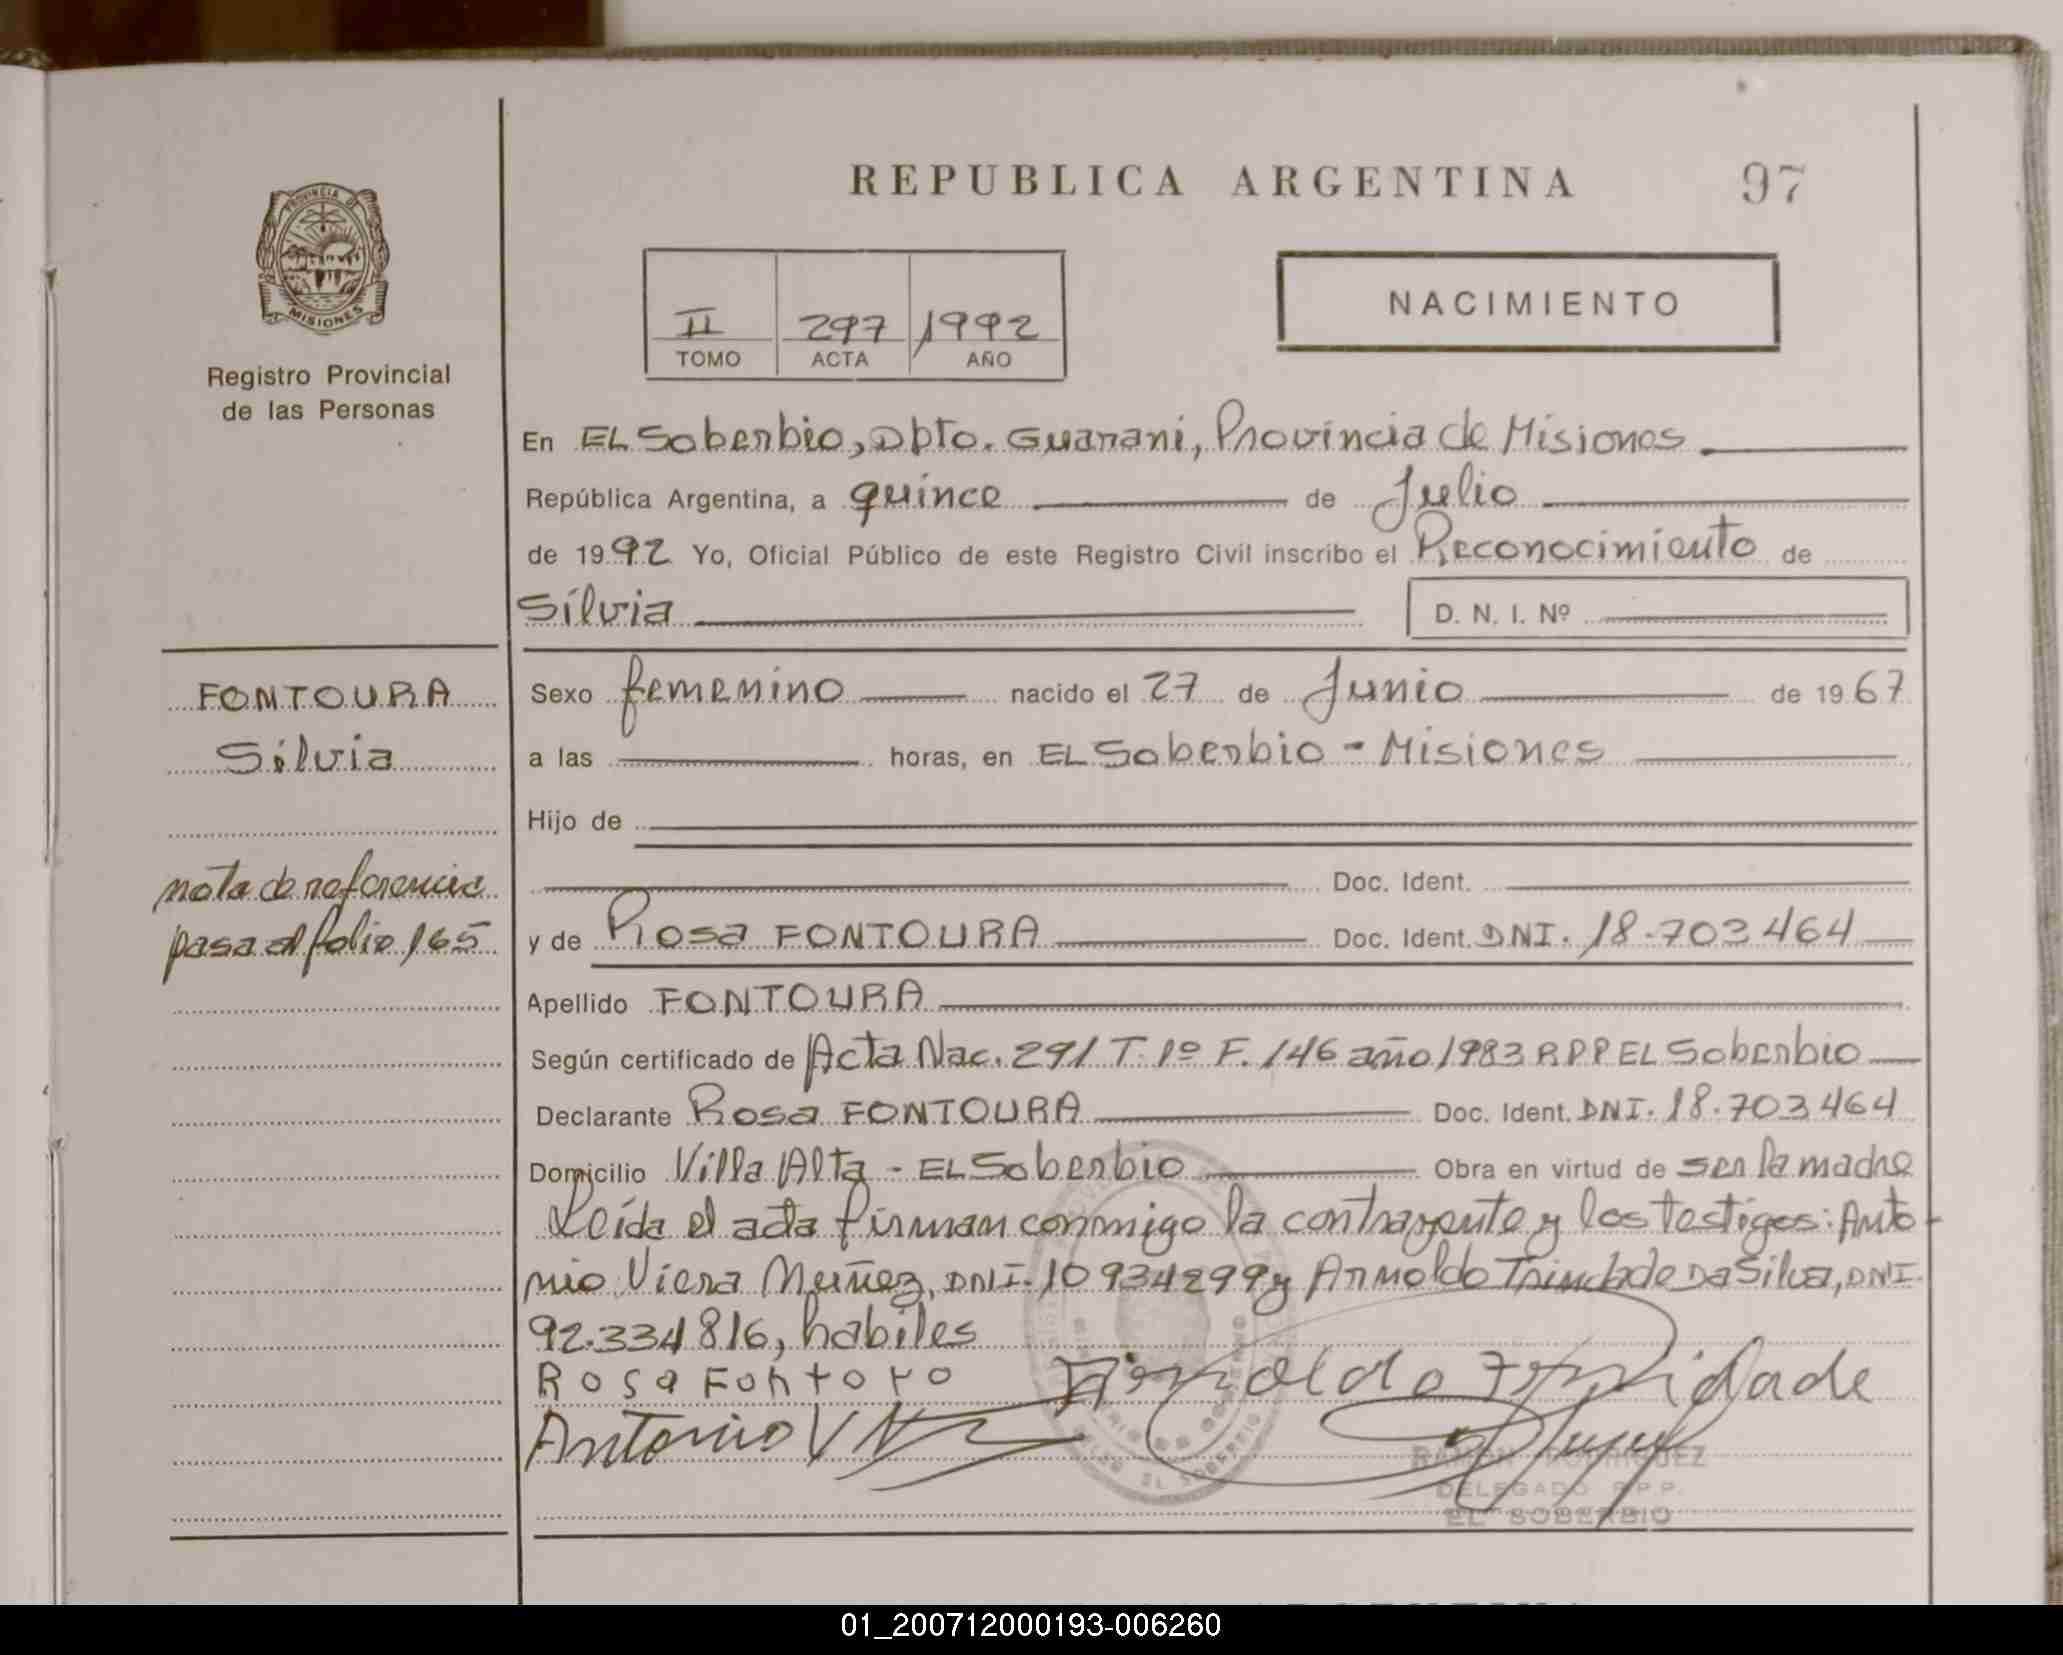 REPUBLICA ARGENTINA 97
PROVINCIA DE
MISIONES
Registro Provincial
de las Personas
II 297 1992
TOMO ACTA AÑO
NACIMIENTO
En EL Soberbio, Dpto. Guarani, Provincia de Misiones
República Argentina, a quince de Julio
de 1992 Yo, Oficial Público de este Registro Civil inscribo el Reconocimiento de
Silvia D. N. I. Nº
FONTOURA
Silvia
nota de referencia
pasa al folio 165
Sexo femenino nacido el 27 de Junio de 1967
a las horas, en EL Soberbio - Misiones
Hijo de
Doc. Ident.
y de Rosa FONTOURA Doc. Ident. DNI. 18.703464
Apellido FONTOURA
Según certificado de Acta Nac. 291 T. 1º F. 146 año 1983 R P P EL Soberbio
Declarante Rosa FONTOURA Doc. Ident. DNI. 18.703464
Domicilio Villa Alta - EL Soberbio Obra en virtud de ser la madre
Leída el acta firman conmigo la contrayente y los testigos: Anto-
nio Viera Muñez, DNI. 10934299 y Arnoldo Trindade Da Silva, DNI.
92.334816, habiles
Rosa Fontoro
Arnoldo Trindade
Antonio V
RAMON RODRIGUEZ
DELEGADO R.P.P.
EL SOBERBIO
01_200712000193-006260